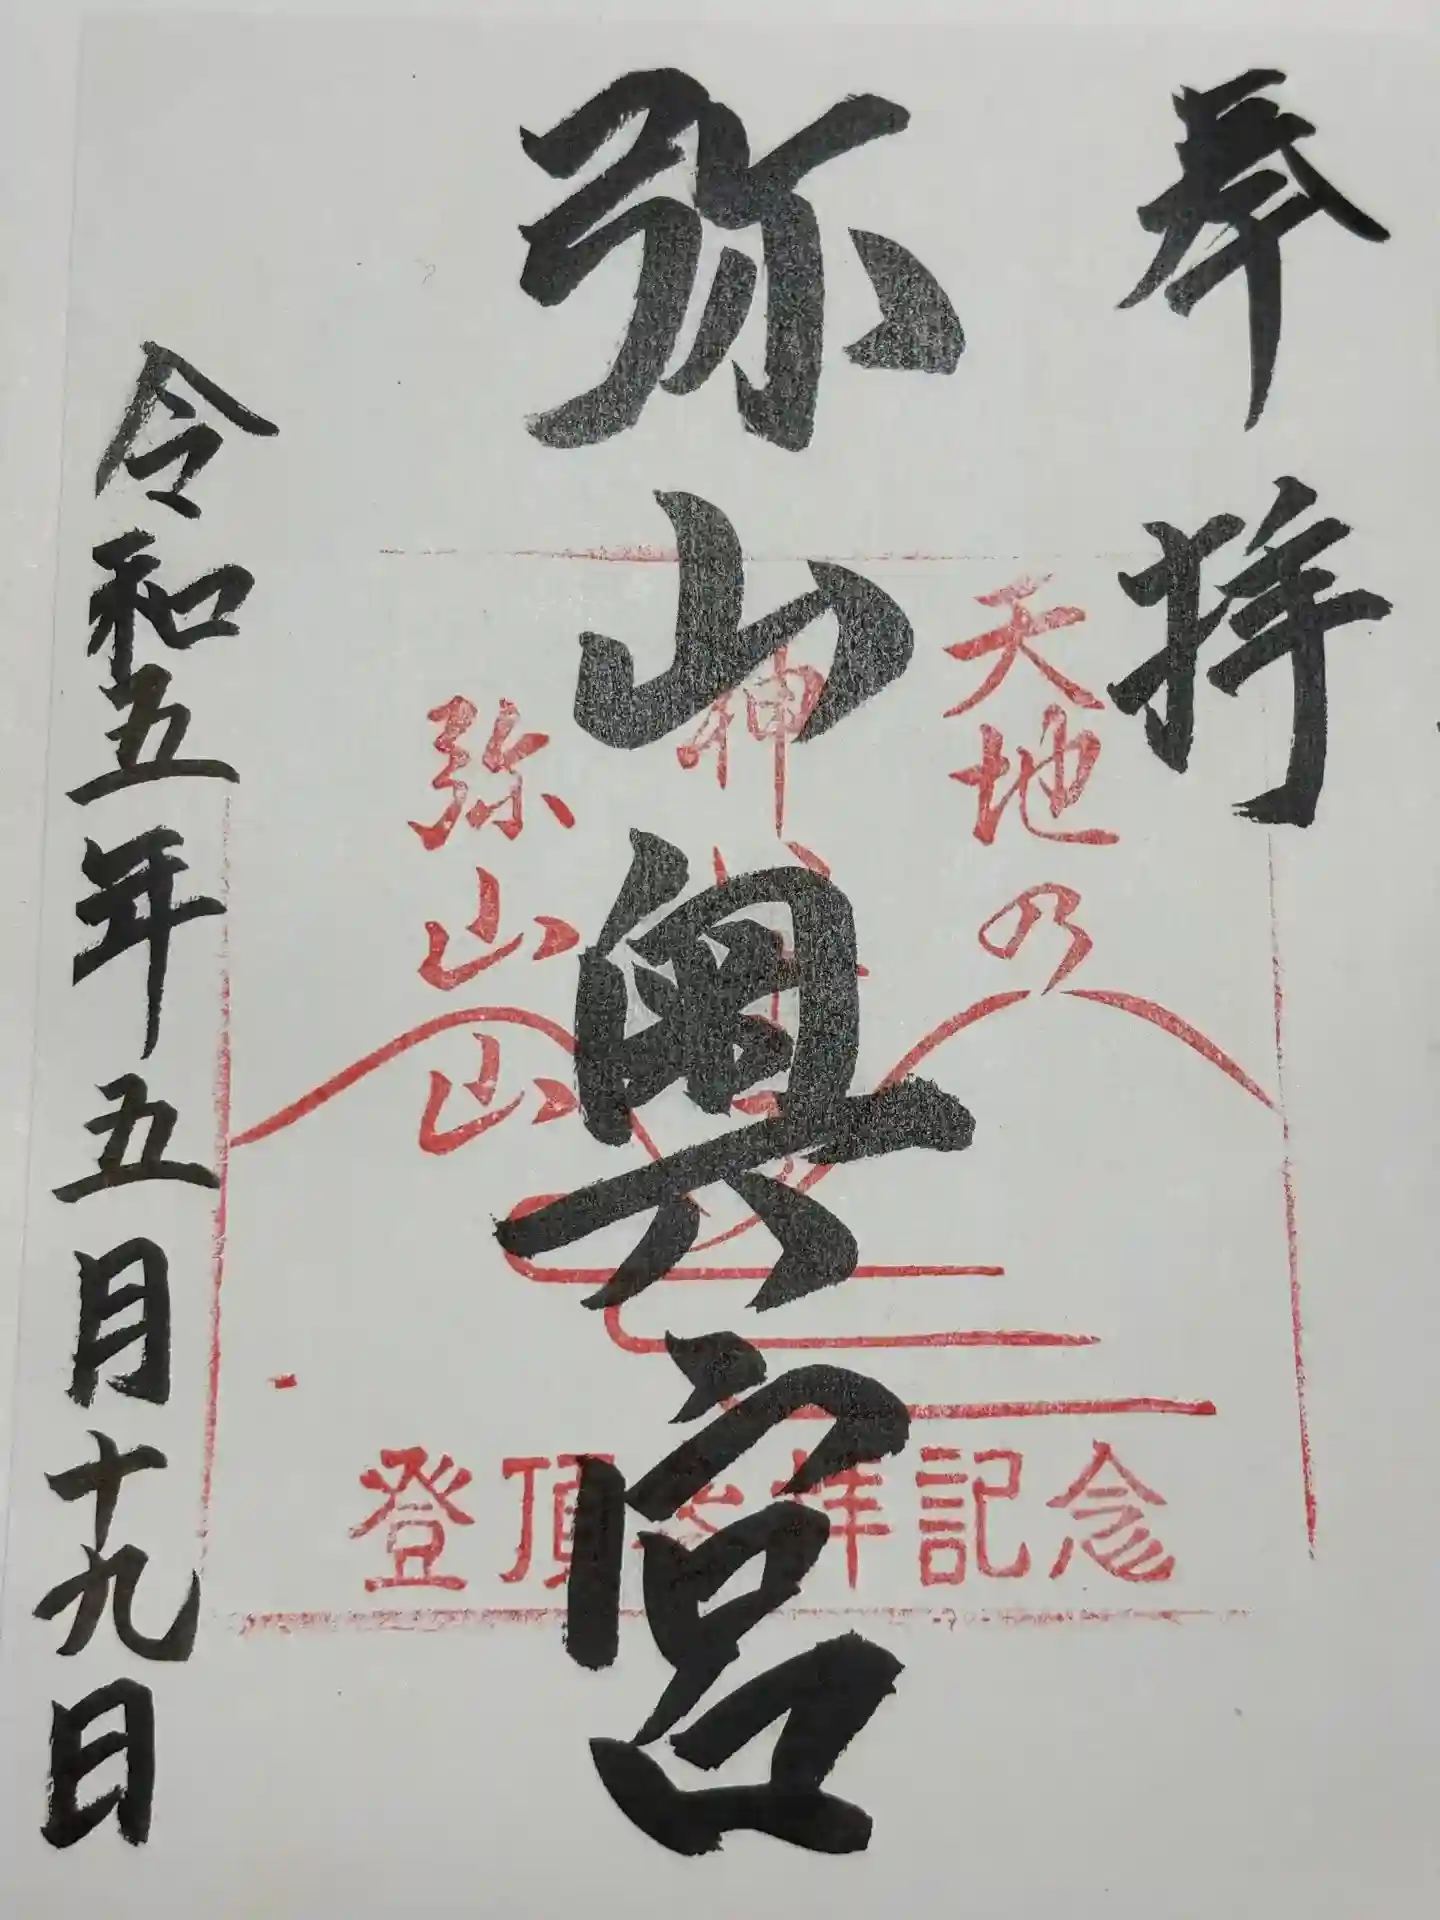 奉拝
弥山奥宮
令和五年五月十九日
天地の
神
弥山山
登頂参拝記念